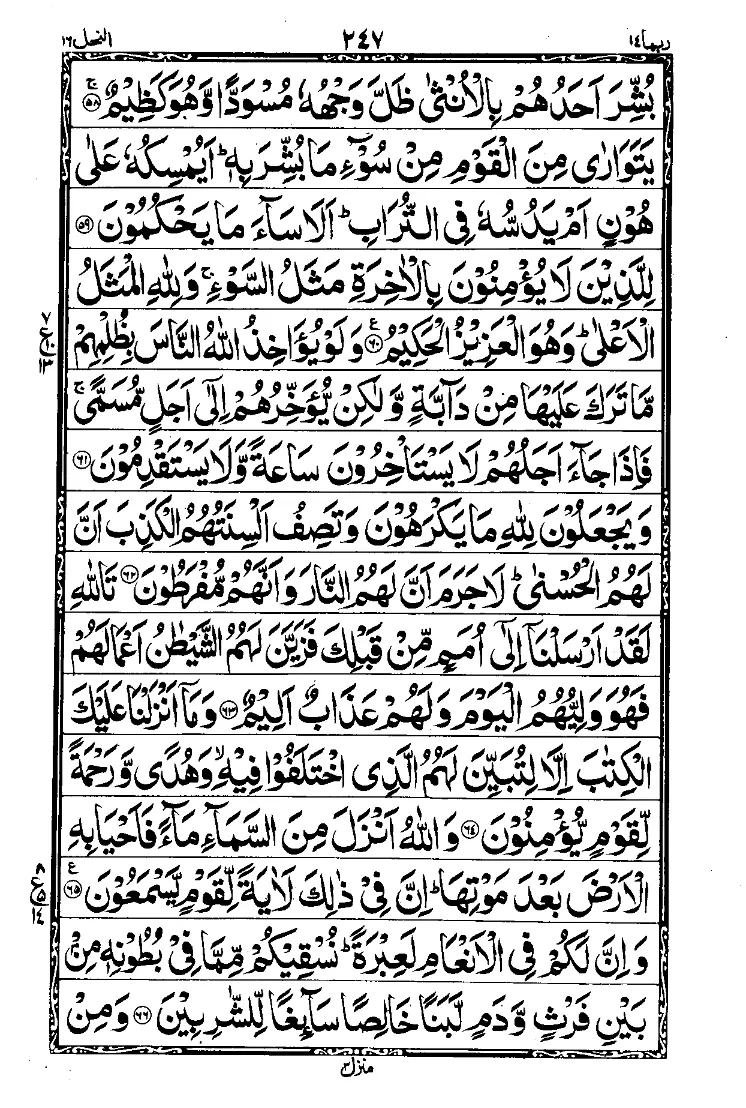 ربما ١٤ ٢٤٧ النحل ١٦
بُشِّرَ اَحَدُهُمْ بِالْاُنْثٰى ظَلَّ وَجْهُهٗ مُسْوَدًّا وَّهُوَ كَظِيْمٌ ۚ‏ ﴿۵۸﴾
يَتَوَارٰى مِنَ الْقَوْمِ مِنْ سُوْٓءِ مَا بُشِّرَ بِهٖ ؕ اَيُمْسِكُهٗ عَلٰى
هُوْنٍ اَمْ يَدُسُّهٗ فِى التُّرَابِ ؕ اَلَا سَآءَ مَا يَحْكُمُوْنَ ﴿۵۹﴾
لِلَّذِيْنَ لَا يُؤْمِنُوْنَ بِالْاٰخِرَةِ مَثَلُ السَّوْءِ ۚ وَلِلّٰهِ الْمَثَلُ
الْاَعْلٰى ؕ وَهُوَ الْعَزِيْزُ الْحَكِيْمُ ﴿۶۰﴾ ع وَلَوْ يُؤَاخِذُ اللّٰهُ النَّاسَ بِظُلْمِهِمْ
مَّا تَرَكَ عَلَيْهَا مِنْ دَآبَّةٍ وَّلٰكِنْ يُّؤَخِّرُهُمْ اِلٰٓى اَجَلٍ مُّسَمًّى ۚ
فَاِذَا جَآءَ اَجَلُهُمْ لَا يَسْتَاْخِرُوْنَ سَاعَةً وَّلَا يَسْتَقْدِمُوْنَ ﴿۶۱﴾
وَيَجْعَلُوْنَ لِلّٰهِ مَا يَكْرَهُوْنَ وَتَصِفُ اَلْسِنَتُهُمُ الْكَذِبَ اَنَّ
لَهُمُ الْحُسْنٰى ؕ لَا جَرَمَ اَنَّ لَهُمُ النَّارَ وَاَنَّهُمْ مُّفْرَطُوْنَ ﴿۶۲﴾ تَاللّٰهِ
لَقَدْ اَرْسَلْنَاۤ اِلٰٓى اُمَمٍ مِّنْ قَبْلِكَ فَزَيَّنَ لَهُمُ الشَّيْطٰنُ اَعْمَالَهُمْ
فَهُوَ وَلِيُّهُمُ الْيَوْمَ وَلَهُمْ عَذَابٌ اَلِيْمٌ ﴿۶۳﴾ وَمَاۤ اَنْزَلْنَا عَلَيْكَ
الْكِتٰبَ اِلَّا لِتُبَيِّنَ لَهُمُ الَّذِى اخْتَلَفُوْا فِيْهِ ۙ وَهُدًى وَّرَحْمَةً
لِّقَوْمٍ يُّؤْمِنُوْنَ ﴿۶۴﴾ وَاللّٰهُ اَنْزَلَ مِنَ السَّمَآءِ مَآءً فَاَحْيَا بِهِ
الْاَرْضَ بَعْدَ مَوْتِهَا ؕ اِنَّ فِىْ ذٰلِكَ لَاٰيَةً لِّقَوْمٍ يَّسْمَعُوْنَ ﴿۶۵﴾ ع
وَاِنَّ لَكُمْ فِى الْاَنْعَامِ لَعِبْرَةً ؕ نُسْقِيْكُمْ مِّمَّا فِىْ بُطُوْنِهٖ مِنْۢ
بَيْنِ فَرْثٍ وَّدَمٍ لَّبَنًا خَالِصًا سَآئِغًا لِّلشّٰرِبِيْنَ ﴿۶۶﴾ وَمِنْ
منزل ٣